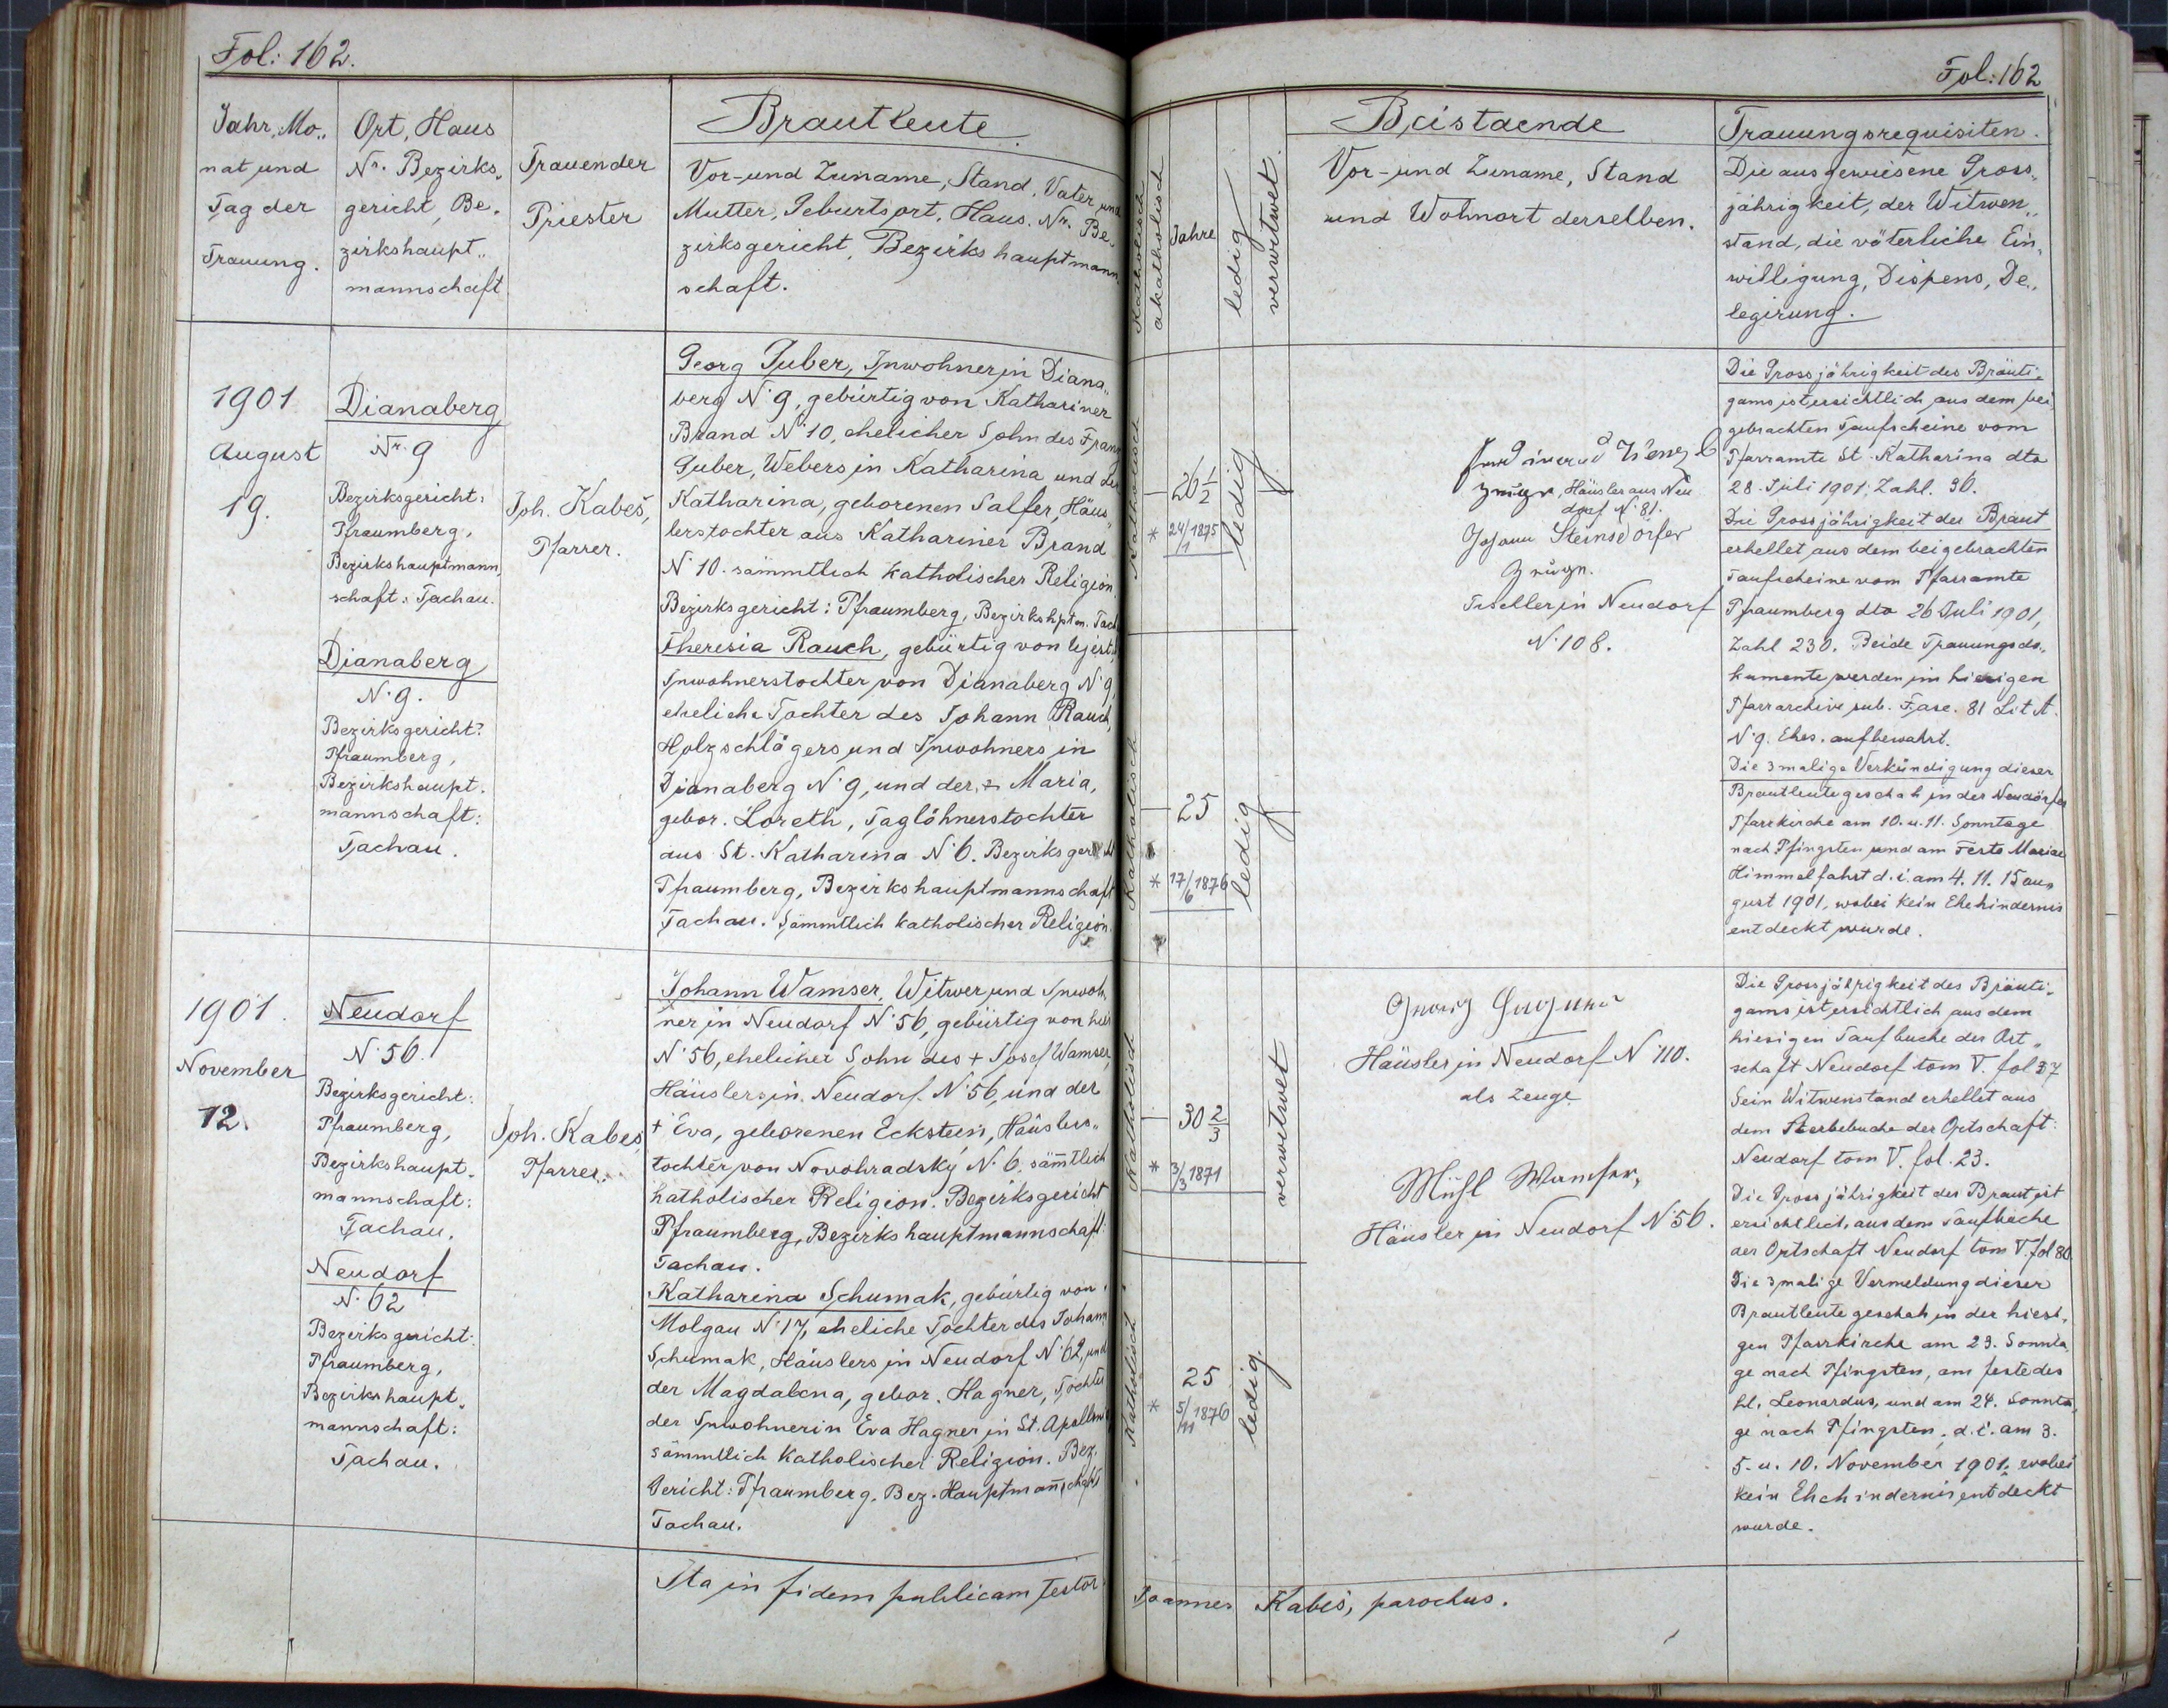 Fol: 162.
Jahr, Mo„
nat und
Tag der
Trauung.
Ort, Haus
Nr. Bezirks„
gericht, Be„
zirkshaupt„
mannschaft
Trauender
Priester
Brautleute
Vor- und Zuname, Stand, Vater und
Mutter, Geburtsort, Haus. Nr. Be„
zirksgericht, Bezirkshauptmann„
schaft.
1901
August
19.
Dianaberg
Nr. 9
Bezirksgericht:
Pfraumberg,
Bezirkshauptmann„
schaft: Tachau.
Dianaberg
N. 9.
Bezirksgericht:
Pfraumberg,
Bezirkshaupt„
mannschaft:
Tachau.
Joh. Kabeš,
Pfarrer.
Georg Guber, Inwohner in Diana„
berg N. 9, gebürtig von Kathariner
Brand N. 10, ehelicher Sohn des Franz
Guber, Webers in Katharina und der
Katharina, geborenen Salfer, Häus„
lerstochter aus Kathariner Brand
N. 10. sämmtlich katholischer Religion
Bezirksgericht: Pfraumberg, Bezirkshptm. Tach
Theresia Rauch, gebürtig von
Inwohnerstochter von Dianaberg N. 9
eheliche Tochter des Johann Rauch,
Holzschlägers und Inwohners in
Dianaberg N. 9, und der Maria,
gebor. Loreth, Taglöhnerstochter
aus St. Katharina N. 6. Bezirksgericht
Pfraumberg, Bezirkshauptmannschaft
Tachau. Sämmtlich katholischer Religion.
1901.
November
12.
Neudorf
N. 56.
Bezirksgericht:
Pfraumberg,
Bezirkshaupt„
mannschaft:
Tachau.
Neudorf
N. 62
Bezirksgericht:
Pfraumberg,
Bezirkshaupt„
mannschaft:
Tachau.
Joh. Kabeš
Pfarrer.
Johann Wamser, Witwer und Inwoh„
ner in Neudorf N. 56, gebürtig von hier
N. 56, ehelicher Sohn des + Josef Wamser,
Häuslers in Neudorf N. 56, und der
+ Eva, geborenen Eckstein, Häuslers„
tochter von Novohradsky N. 6. sämtlich
katholischer Religion. Bezirksgericht
Pfraumberg, Bezirkshauptmannschaft:
Tachau.
Katharina Schumak, gebürtig von
Molgau N. 17, eheliche Tochter des Johann
Schumak, Häuslers in Neudorf N. 62, und
der Magdalena, gebor. Hagner, Tochter
der Inwohnerin Eva Hagner in St. Apollon
sämmtlich katholischer Religion. Bez.
Gericht: Pfraumberg, Bez. Hauptmannschaft
Tachau.
Ita in fidem publicam testor
Fol: 162
katholisch
akatholisch
Jahre
ledig
verwitwet.
Beistaende
Vor- und Zuname, Stand
und Wohnort derselben.
Trauungsrequisiten.
Die ausgewiesene Gross„
jährigkeit, der Witwen„
stand, die väterliche Ein„
willigung, Dispens, De„
legirung.
Katholisch
26 1/2
* 24/1 1875
ledig
Wenzl
Zeuge, Häusler aus Neu
dorf N. 81.
Johann Steinsdörfer
Zeuge.
Tischler in Neudorf
N. 108.
Katholisch
25
* 17/6 1876
ledig
Die Grossjährigkeit des Bräuti„
gams ist ersichtlich aus dem bei„
gebrachten Taufscheine vom
Pfarramte St. Katharina dto
28. Juli 1901, Zahl. 96.
Die Grossjährigkeit der Braut
erhellet aus dem beigebrachten
Taufscheine vom Pfarramte
Pfraumberg dto 26 Juli 1901,
Zahl 230. Beide Trauungsdo„
kumente werden im hiesigen
Pfarrarchive sub. Fasc. 81 Lit A.
N. 9. Ehes. aufbewahrt.
Die 3malige Verkündigung dieser
Brautleute geschah in der Neudörfer
Pfarrkirche am 10. u. 11. Sonntage
nach Pfingsten und am Feste Mariae
Himmelfahrt d. i. am 4. 11. 15 au„
gust 1901, wobei kein Ehehindernis
entdeckt wurde.
Katholisch
30 2/3
* 3/3 1871
verwitwet
Georg
Häusler in Neudorf N. 110.
als Zeuge
Wamser,
Häusler in Neudorf N. 56.
Katholisch
25
* 5/11 1876
ledig.
Die Grossjährigkeit des Bräuti„
gams ist ersichtlich aus dem
hiesigen Taufbuche der Ort„
schaft Neudorf tom V. fol 37
Sein Witwenstand erhellet aus
dem Sterbebuche der Ortschaft:
Neudorf tom V. fol. 23.
Die Grossjährigkeit der Braut ist
ersichtlich aus dem Taufbuche
der Ortschaft Neudorf tom V. fol 80
Die 3malige Vermeldung dieser
Brautleute geschah in der hiesi„
gen Pfarrkirche am 23. Sonnta„
ge nach Pfingsten, am Feste des
hl. Leonardus, und am 24. Sonnta„
ge nach Pfingsten, d. i. am 3.
5. u. 10. November 1901, wobei
kein Ehehindernis entdeckt
wurde.
Joannes Kabeš, parochus.